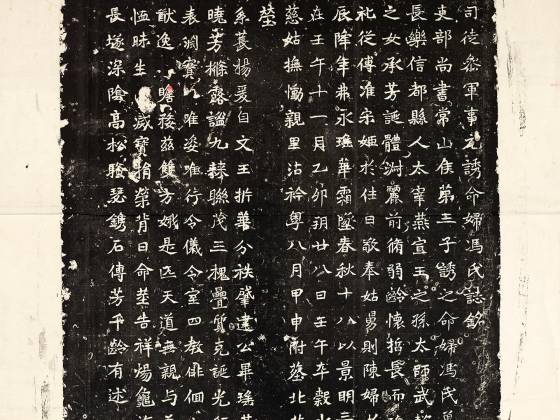 司徒參軍事元誘命婦馮氏誌銘
吏部尚書常山侯第三子誘之命婦馮氏
長樂信都縣人太宰燕宣王之孫太師武
之女承芳誕體淵麗前脩弱齡懷哲長而
祀從傅准宗姬於往日敬奉姑舅則陳婦
辰降年弗永瑤華霜墜春秋十八以景明三
在壬午十一月乙卯朔廿八日壬午卒穀水
慈姑撫慟親里沾衿粵八月甲申附塋北芒
塋
系基揚爰自文王折華分秩肇建公畢瑤
曉芳樹露謐九棘聯茂三槐疊質克誕光
表淵唯姿唯行令儀令室四教徘徊
猷逸瞻茲雙芳娥是匹天道無親與
恆昧生滅寶榮背日命塋告祥煬龜
長埏深陰高松騷瑟鐫石傳芳千齡有述